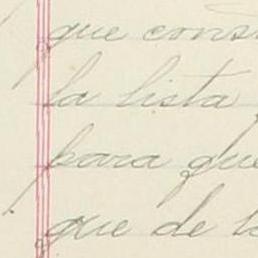 que cons
la lista
para que
que de t